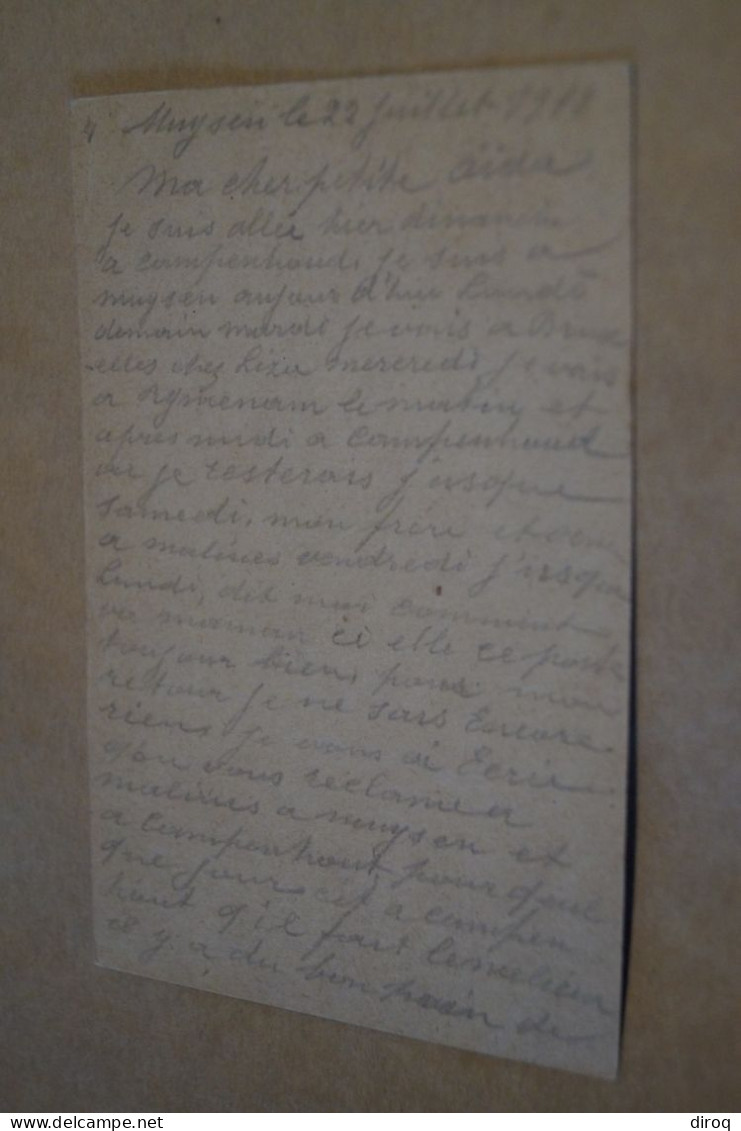 4 Muysen le 22 Juillet 1918
Ma cher petite aïda
je suis allée hier dimanche
a campenhoud, je suis a
muysen aujour d'hui Lundi
demain mardi je vais a Brux
elles chez Liza mercredi je vais
a Rymenam le matin et
après midi a campenhoud
ou je resterais j'usque
samedi, mon frère
a malines vendredi j'usqu
Lundi, dit moi comment
va maman ci elle ce porte
toujour bien, pour mon
retour je ne sais Encore
riens je vous ai Ecrie
qu'on vous réclame a
malines a muysen et
a campenhout pour quel
que jours cet a campen
hout q'il fait
il y a du bon pain de
diroq